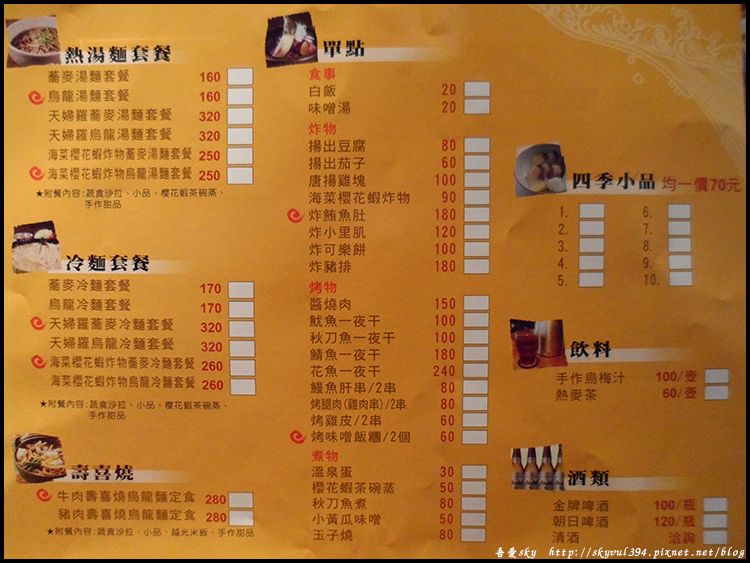 熱湯麵套餐
蕎麥湯麵套餐 160
烏龍湯麵套餐 160
天婦羅蕎麥湯麵套餐 320
天婦羅烏龍湯麵套餐 320
海菜櫻花蝦炸物蕎麥湯麵套餐 250
海菜櫻花蝦炸物烏龍湯麵套餐 250
★附餐內容:蔬食沙拉、小品、櫻花蝦茶碗蒸、
手作甜品
冷麵套餐
蕎麥冷麵套餐 170
烏龍冷麵套餐 170
天婦羅蕎麥冷麵套餐 320
天婦羅烏龍冷麵套餐 320
海菜櫻花蝦炸物蕎麥冷麵套餐 260
海菜櫻花蝦炸物烏龍冷麵套餐 260
★附餐內容:蔬食沙拉、小品、櫻花蝦茶碗蒸、
手作甜品
壽喜燒
牛肉壽喜燒烏龍麵定食 280
豬肉壽喜燒烏龍麵定食 280
★附餐內容:蔬食沙拉、小品、越光米飯、手作甜品
單點
食事
白飯 20
味噌湯 20
炸物
揚出豆腐 80
揚出茄子 60
唐揚雞塊 100
海菜櫻花蝦炸物 90
炸鮪魚肚 180
炸小里肌 120
炸可樂餅 100
炸豬排 180
烤物
醬燒肉 150
魷魚一夜干 100
秋刀魚一夜干 100
鯖魚一夜干 180
花魚一夜干 240
鰻魚肝串/2串 80
烤腿肉(雞肉串)/2串 80
烤雞皮/2串 60
烤味噌飯糰/2個 60
煮物
溫泉蛋 30
櫻花蝦茶碗蒸 50
秋刀魚煮 80
小黃瓜味噌 50
玉子燒 80
四季小品 均一價70元
1. 6.
2. 7.
3. 8.
4. 9.
5. 10.
飲料
手作烏梅汁 100/壺
熱麥茶 60/壺
酒類
金牌啤酒 100/瓶
朝日啤酒 120/瓶
清酒 洽詢
吾曼sky http://skyvul394.pixnet.net/blog